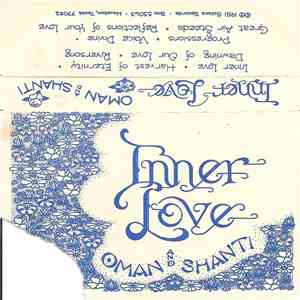 Inner Love • Harvest of Eternity •
Dawning of Our Love • Riversong
Progressions • Voice Divine •
Great Air Steeds • Reflections of Your Love
Records • Box • Houston, Texas
Inner Love
OMAN AND SHANTI
Inner
Love
OMAN AND SHANTI